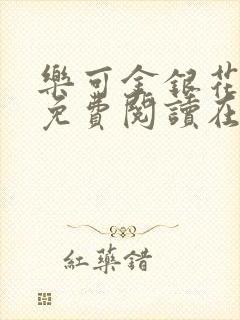 樂可金銀花
免費閱讀在
紅藥錯